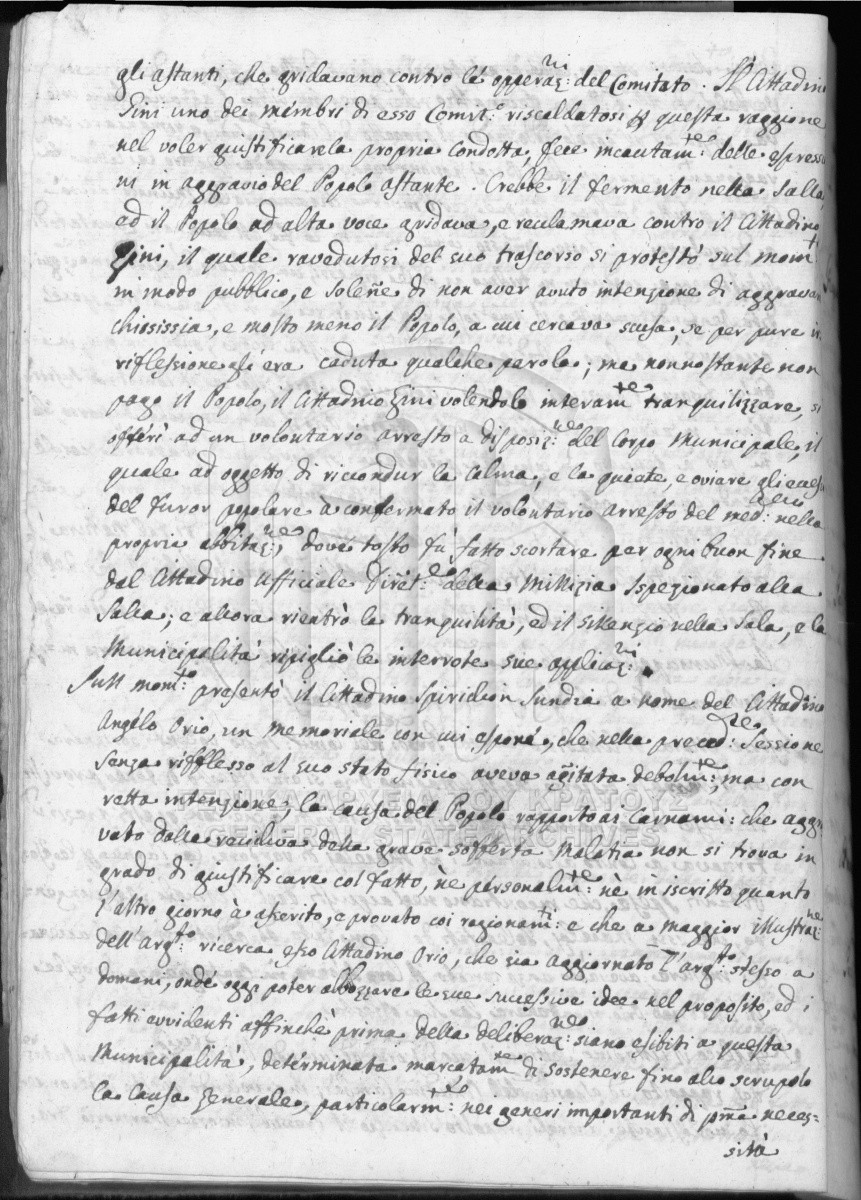 gli astanti, che gridavano contro le opperaz:ni del Comitato. Il Cittadino
Gini uno dei membri di esso Comit:o riscaldatosi per questa raggione
nel voler giustificare la propria condotta, fece incautam:te delle espressio
ni in aggravio del Popolo astante. Crebbe il fermento nella Salla,
ed il Popolo ad alta voce gridava, e reclamava contro il Cittadino
Gini, il quale ravedutosi del suo trascorso si protestò sul mom:to
in modo pubblico, e solene di non aver avuto intenzione di aggravar
chisissia, e molto meno il Popolo, a cui cercava scusa, se per pura ir
riflessione gli era caduta qualche parola; ma nonnostante non
pago il Popolo, il Cittadino Gini volendolo interam:te tranquilizzare, si
offerì ad un volontario arresto a disposiz:ne del Corpo Municipale, il
quale ad oggetto di ricondur la calma, e la quiete, e oviare gli ecessi
del furor popolare à confermato il volontario arresto del med:mo nella
propria abbitaz:ne, dove tosto fù fatto scortare per ogni buon fine
dal Cittadino Ufficiale Diret:e della Millizia Ispezionato alla
Salla; e allora rientrò la tranquilità, ed il sillenzio nella Sala, e la
Municipalità ripigliò le interrote sue applicaz:ni.
Sull mom:to presentò il Cittadino Spiridion Sundia a nome del Cittadino
Angelo Orio, un memoriale con cui espone, che nella preced:te Sessione
senza rifflesso al suo stato fisico aveva agitata debolm:te, ma con
retta intenzione, la causa del Popolo rapporto ai Carnami: che aggra
vato dalla recidiva della grave sofferta malatia non si trova in
grado di giustificare col fatto, nè personalm:te nè in iscritto quanto
l'altro giorno à asserito, e provato coi ragionam:ti: e che a maggior illustraz:ne
dell'arg:to ricerca esso Cittadino Orio, che sia aggiornato l'arg:to stesso a
domani, onde oggi poter abbozzare le sue sucessive idee nel proposito, ed i
fatti evvidenti affinchè prima della deliberaz:ne siano esibiti a questa
Municipalità, determinata marcatam:te di sostenere fino allo scrupolo
la causa generale, particolarm:te nei generi importanti di pma neces=
sità
ΓΕΝΙΚΑ ΑΡΧΕΙΑ ΤΟΥ ΚΡΑΤΟΥΣ
GENERAL STATE ARCHIVES